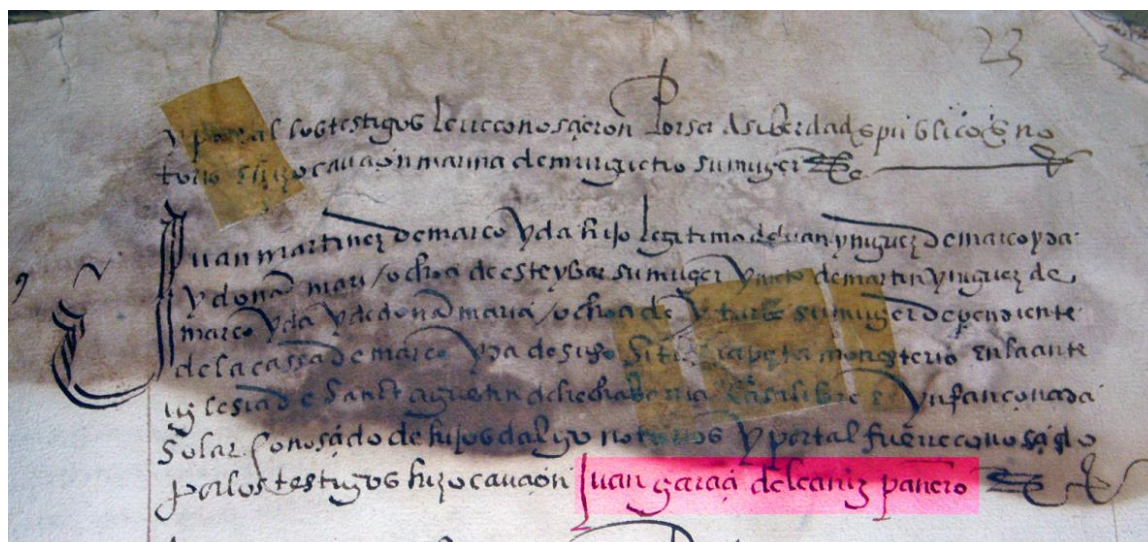 23
y por tal los testigos le reconosçieron Por ser asi berdad e publico e no
torio e hizo cauçion marina de murguetio su muger
Juan martinez de marcoyda hijo legitimo de Juan yniguez de marcoyda
y doña mari ochoa de esteybar su muger y nieto de martin yniguez de
marcoyda y de doña maria ochoa de yturbe su muger dependiente
de la cassa de marcoyda de suso monesterio en la ante
iglesia de Sanct agustin de hechabarria Casa libre e ynfançonada
Solar Conosçido de hijos dalgo notorios y por tal fue reconosçido
por los testigos hizo cauçion Juan garçia de leaniz panero